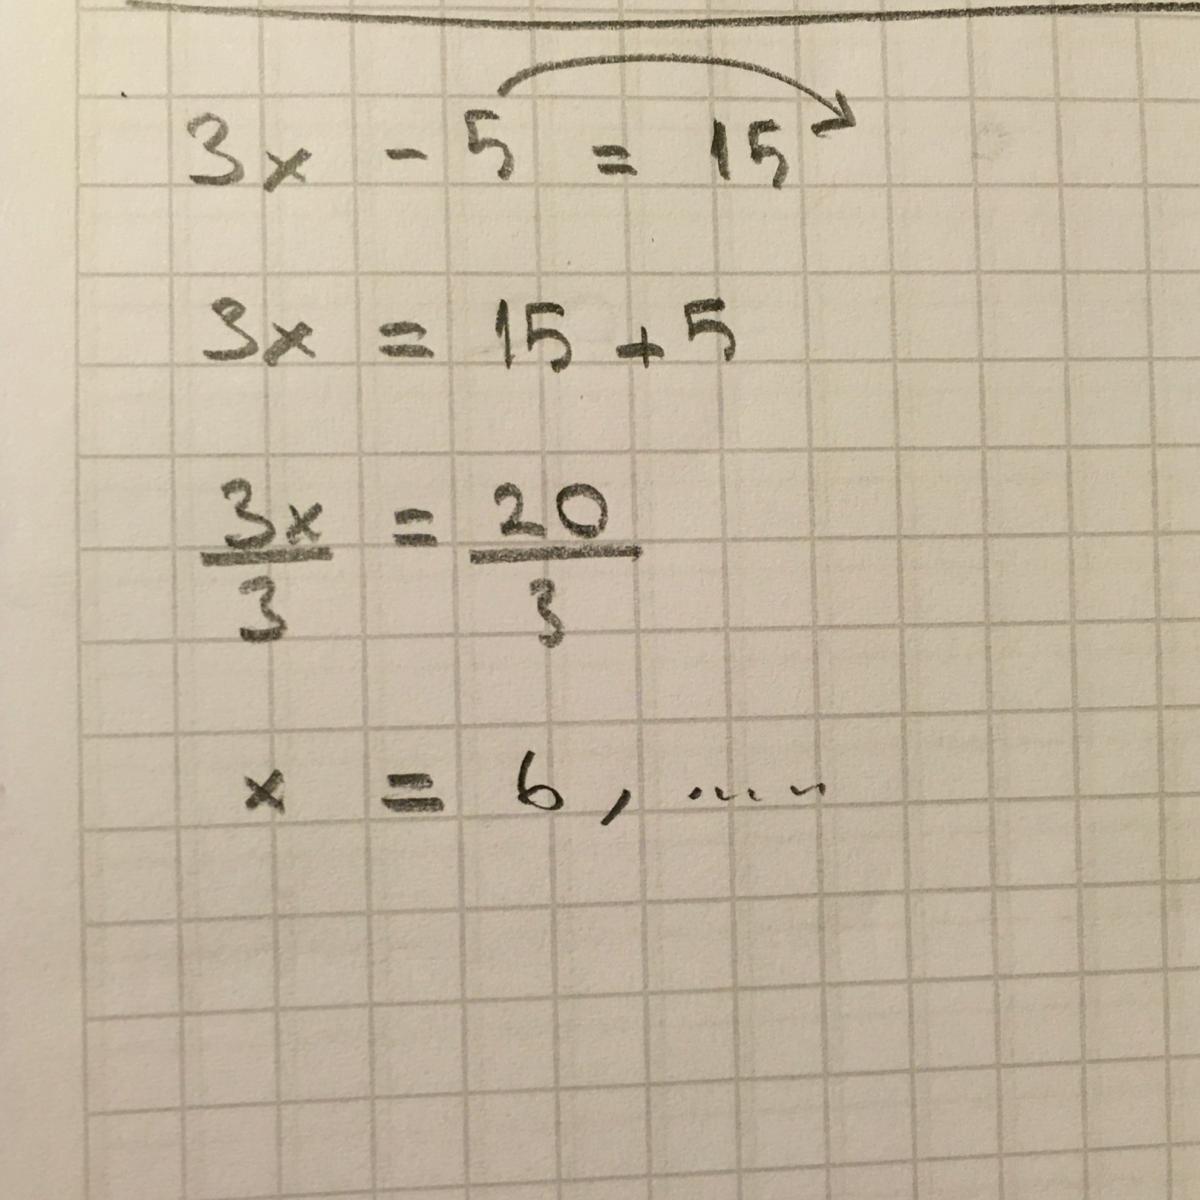 3x - 5 = 15
3x = 15 + 5
3x/3 = 20/3
x = 6, .....